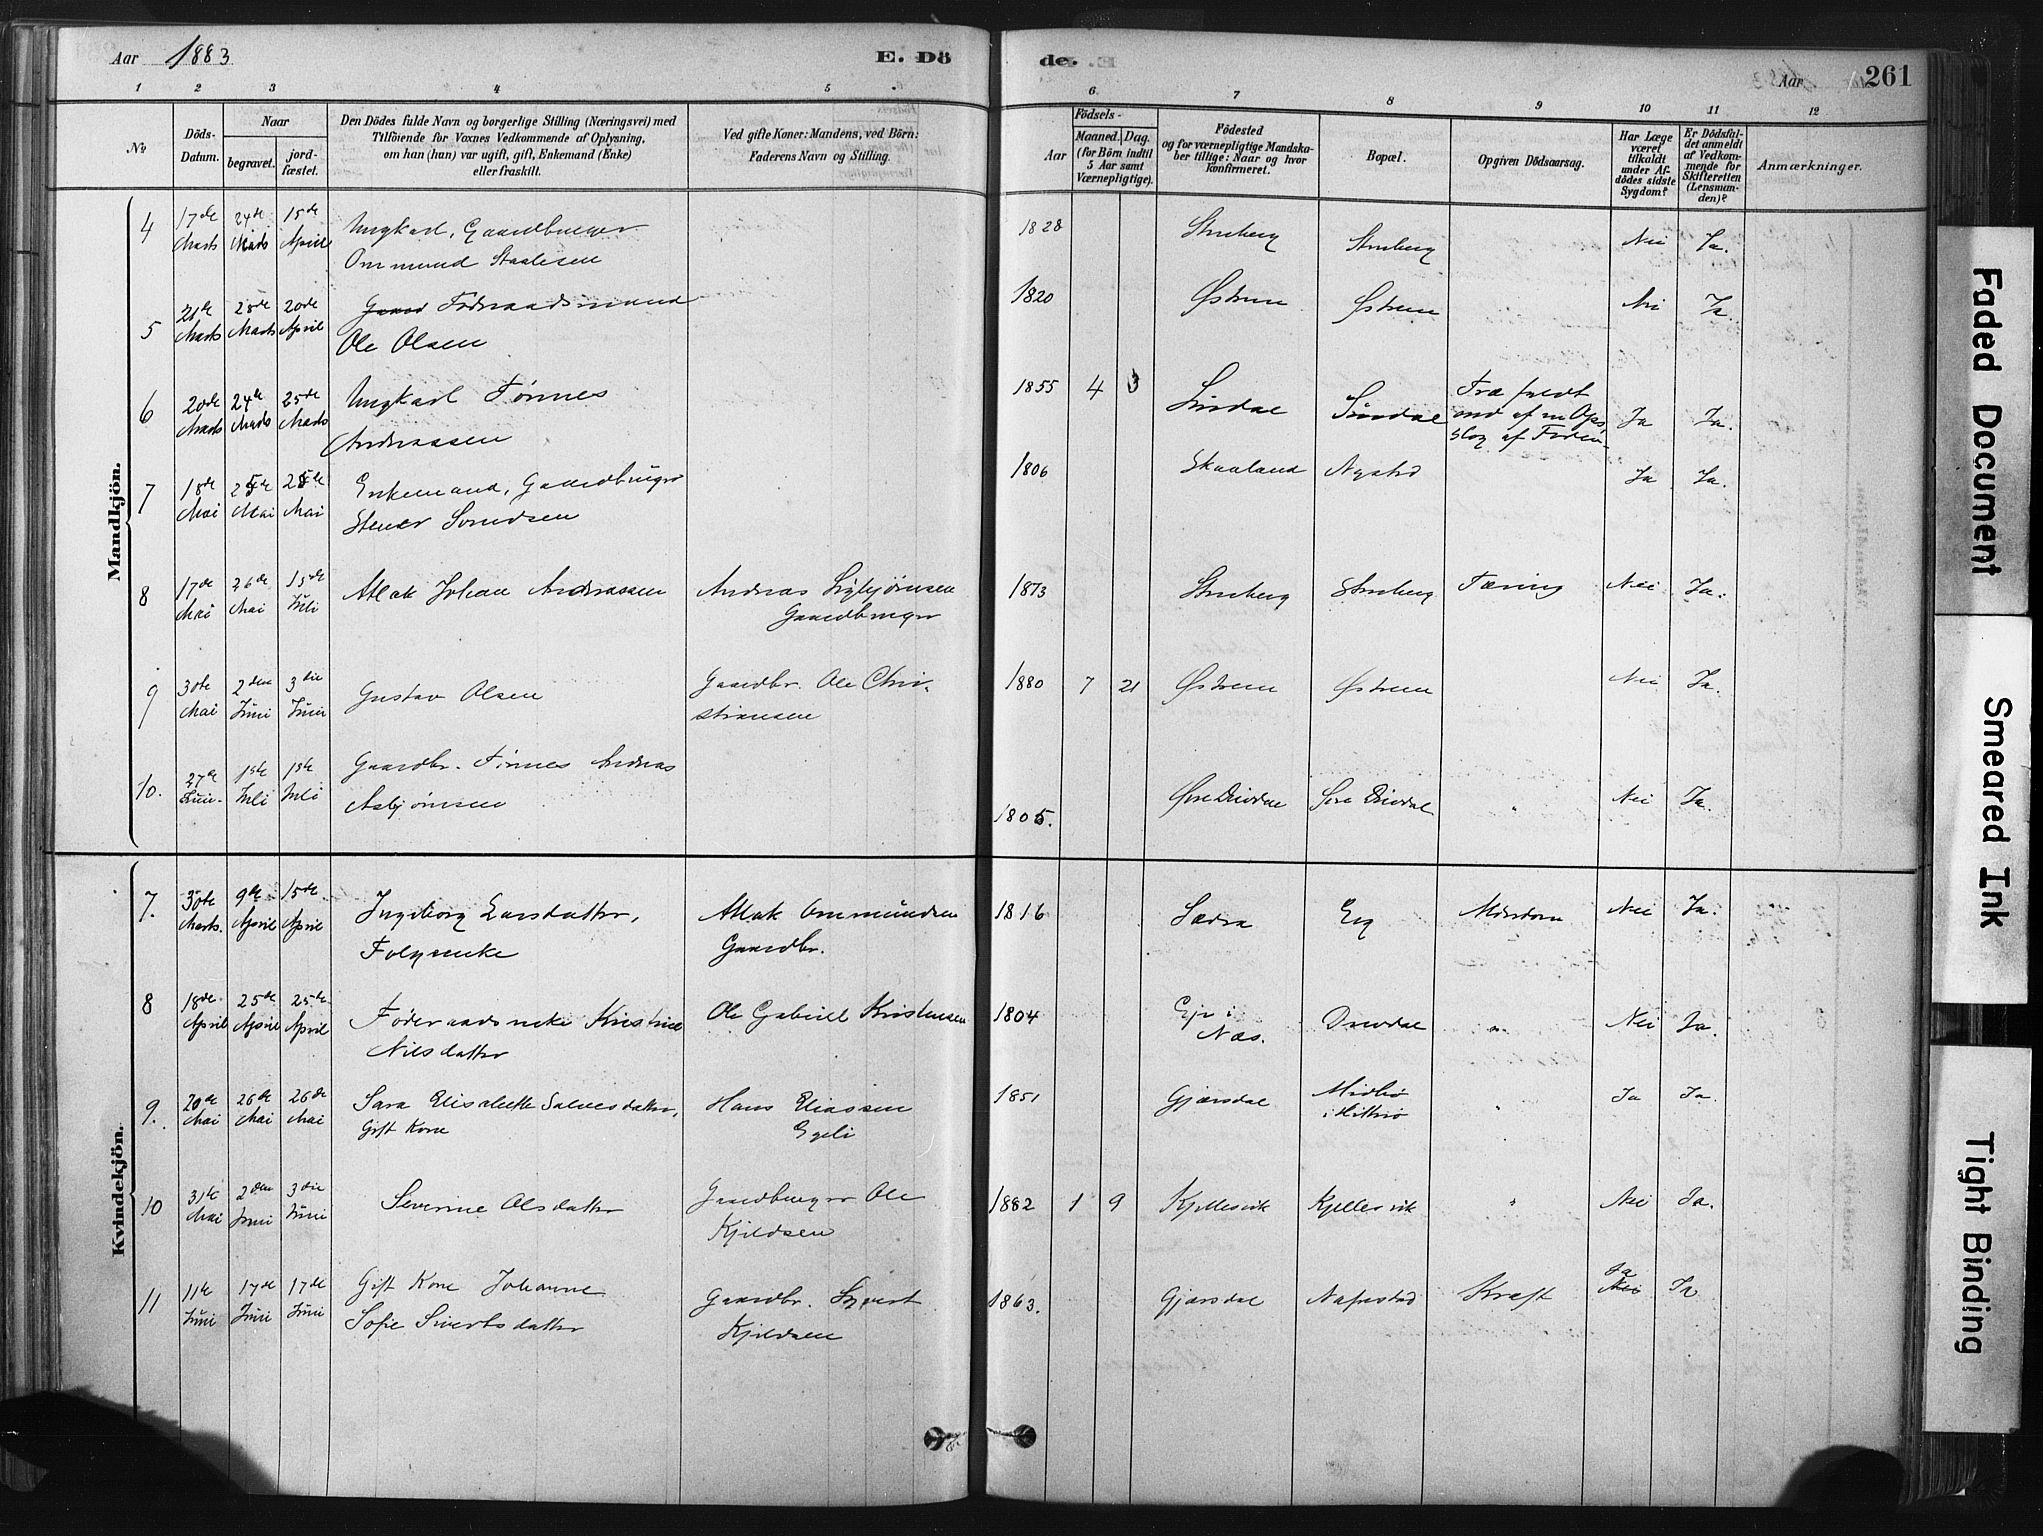 Aar 1883
E. Dö
de.
Aar 261
1 2 3 4 5 6 7 8 9 10 11 12
No
Döds-Datum.
Naar
begravet.
jord-fæstet.
Den Dödes fulde Navn og borgerlige Stilling (Næringsvei) med
Tilföiende for Voxnes Vedkommende af Oplysning,
om han (hun) var ugift, gift, Enkemand (Enke)
eller fraskilt.
Ved gifte Koner: Mandens, ved Börn:
Faderens Navn og Stilling.
Födsels-
Aar
Maaned. Dag.
(for Börn indtil
5 Aar samt
Værnepligtige).
Födested
og for værnepligtige Mandska-
ber tillige: Naar og hvor
konfirmeret.
Bopæl.
Opgiven Dödsaarsag.
Har Læge
været
tilkaldt
under Af-
dödes sidste
Sygdom?
Er Dödsfal-
det anmeldt
af Vedkom-
mende for
Skifteretten
(Lensman-
den)?
Anmærkninger.
Mandkjön.
4 17de Marts 24de Marts 15de April Ungkarl, Gaardbruger
Ommund Staalesen
1828 Nei Ja.
5 21de Marts 28de Marts 20de April Gaard Föderaadsmand
Ole Olsen
1820 Østrem Østrem Nei Ja.
6 20de Marts 24de Marts 25de Marts Ungkarl Tønnes
Andreassen
1855 4 3 Ja Ja.
7 18de Mai 25de Mai 25de Mai Enkemand, Gaardbruger
1806 Skaaland Nystad Ja Ja.
8 17de Mai 26de Mai 15de Juli Atlak Johan Andreassen
Andreas Sigbjørnsen
Gaardbruger
1873 Tæring Nei Ja.
9 30te Mai 2den Juni 3die Juni Gustav Olsen
Gaardbr. Ole Chri-
stiansen
1880 7 21 Østrem Østrem Nei Ja.
10. 27de Juni 1ste Juli 1ste Juli Gaardbr. Tønnes Andreas
Asbjørnsen
1805. Nei Ja.
Kvindekjön.
7. 30te Marts. 9de April 15de April Ingeborg Larsdatter,
Atlak Ommundsen
Gaardbr.
1816 Eeg Nei Ja.
8 18de April 25de April 25de April Föderaadsenke Kristine
Nilsdatter
Ole Gabriel Kristensen
1804 Eje i
Næs. Drevdal " Nei Ja.
9. 20de Mai 26de Mai 26de Mai Sara Elisabeth Salvesdatter,
Gift Kone
Hans Eliassen
Egeli
1851 Gjærsdal Midbø
i Hitterø " Ja Ja.
10 31te Mai 2den Juni 3die Juni Severine Olsdatter
Gaardbruger Ole
Kjeldsen
1882 1 9 Kjellesvik Kjellesvik " Nei Ja.
11 11te Juni 17de Juni 17de Juni Gift Kone Johanne
Sofie Sivertsdatter
Gaardbr. Sivert
Kjeldsen
1863. Gjærsdal Kræft Ja
Nei Ja
Faded Document
Smeared Ink
Tight Binding